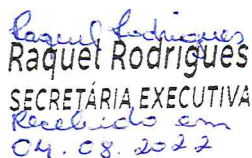 Raquel Rodrigues
Raquel Rodrigues
SECRETÁRIA EXECUTIVA
Recebido em
04.08.2022